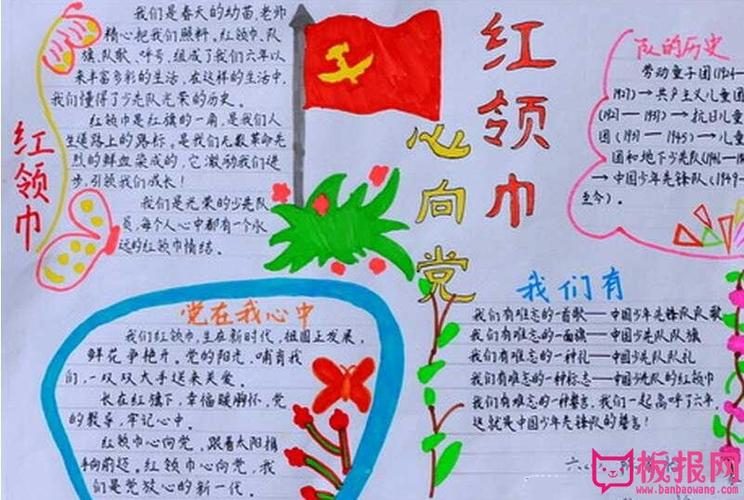 我们是春天的幼苗,老师
精心把我们照料。红领巾、队
旗、队歌、呼号,组成了我们六年以
来丰富多彩的生活。在这样的生活中,
我们懂得了少先队光荣的历史。
红领巾是红旗的一角,是我们人
生道路上的路标。是我们无数革命先
烈的鲜血染成的,它激励我们进
步,引领我们成长!
我们是光荣的少先队
员,每个人心中都有一个永
远的红领巾情结。
红领巾
红领巾
心向党
队的历史
劳动童子团(1924—
1927)→共产主义儿童团
(1927—1937)→抗日儿童
团(1937—1945)→儿童
团和地下少先队(1946—19
→中国少年先锋队(1949—
至今)。
党在我心中
我们红领巾,生在新时代,祖国正发展,
鲜花争艳开。党的阳光,哺育我
们,一双双大手送来关爱。
长在红旗下,幸福暖胸怀,党
的教导,牢记心中。
红领巾心向党,跟着太阳指
向前迈。红领巾心向党,我
们是党放心的新一代。
我们有
我们有难忘的一首歌——中国少年先锋队队歌
我们有难忘的一面旗——中国少先队队旗
我们有难忘的一种礼——中国少先队队礼
我们有难忘的一种标志——中国少先队的红领巾
我们有难忘的一种誓言,我们一起高呼了六年,
这就是中国少年先锋队的誓言!
板报网
www.banbaowang.com